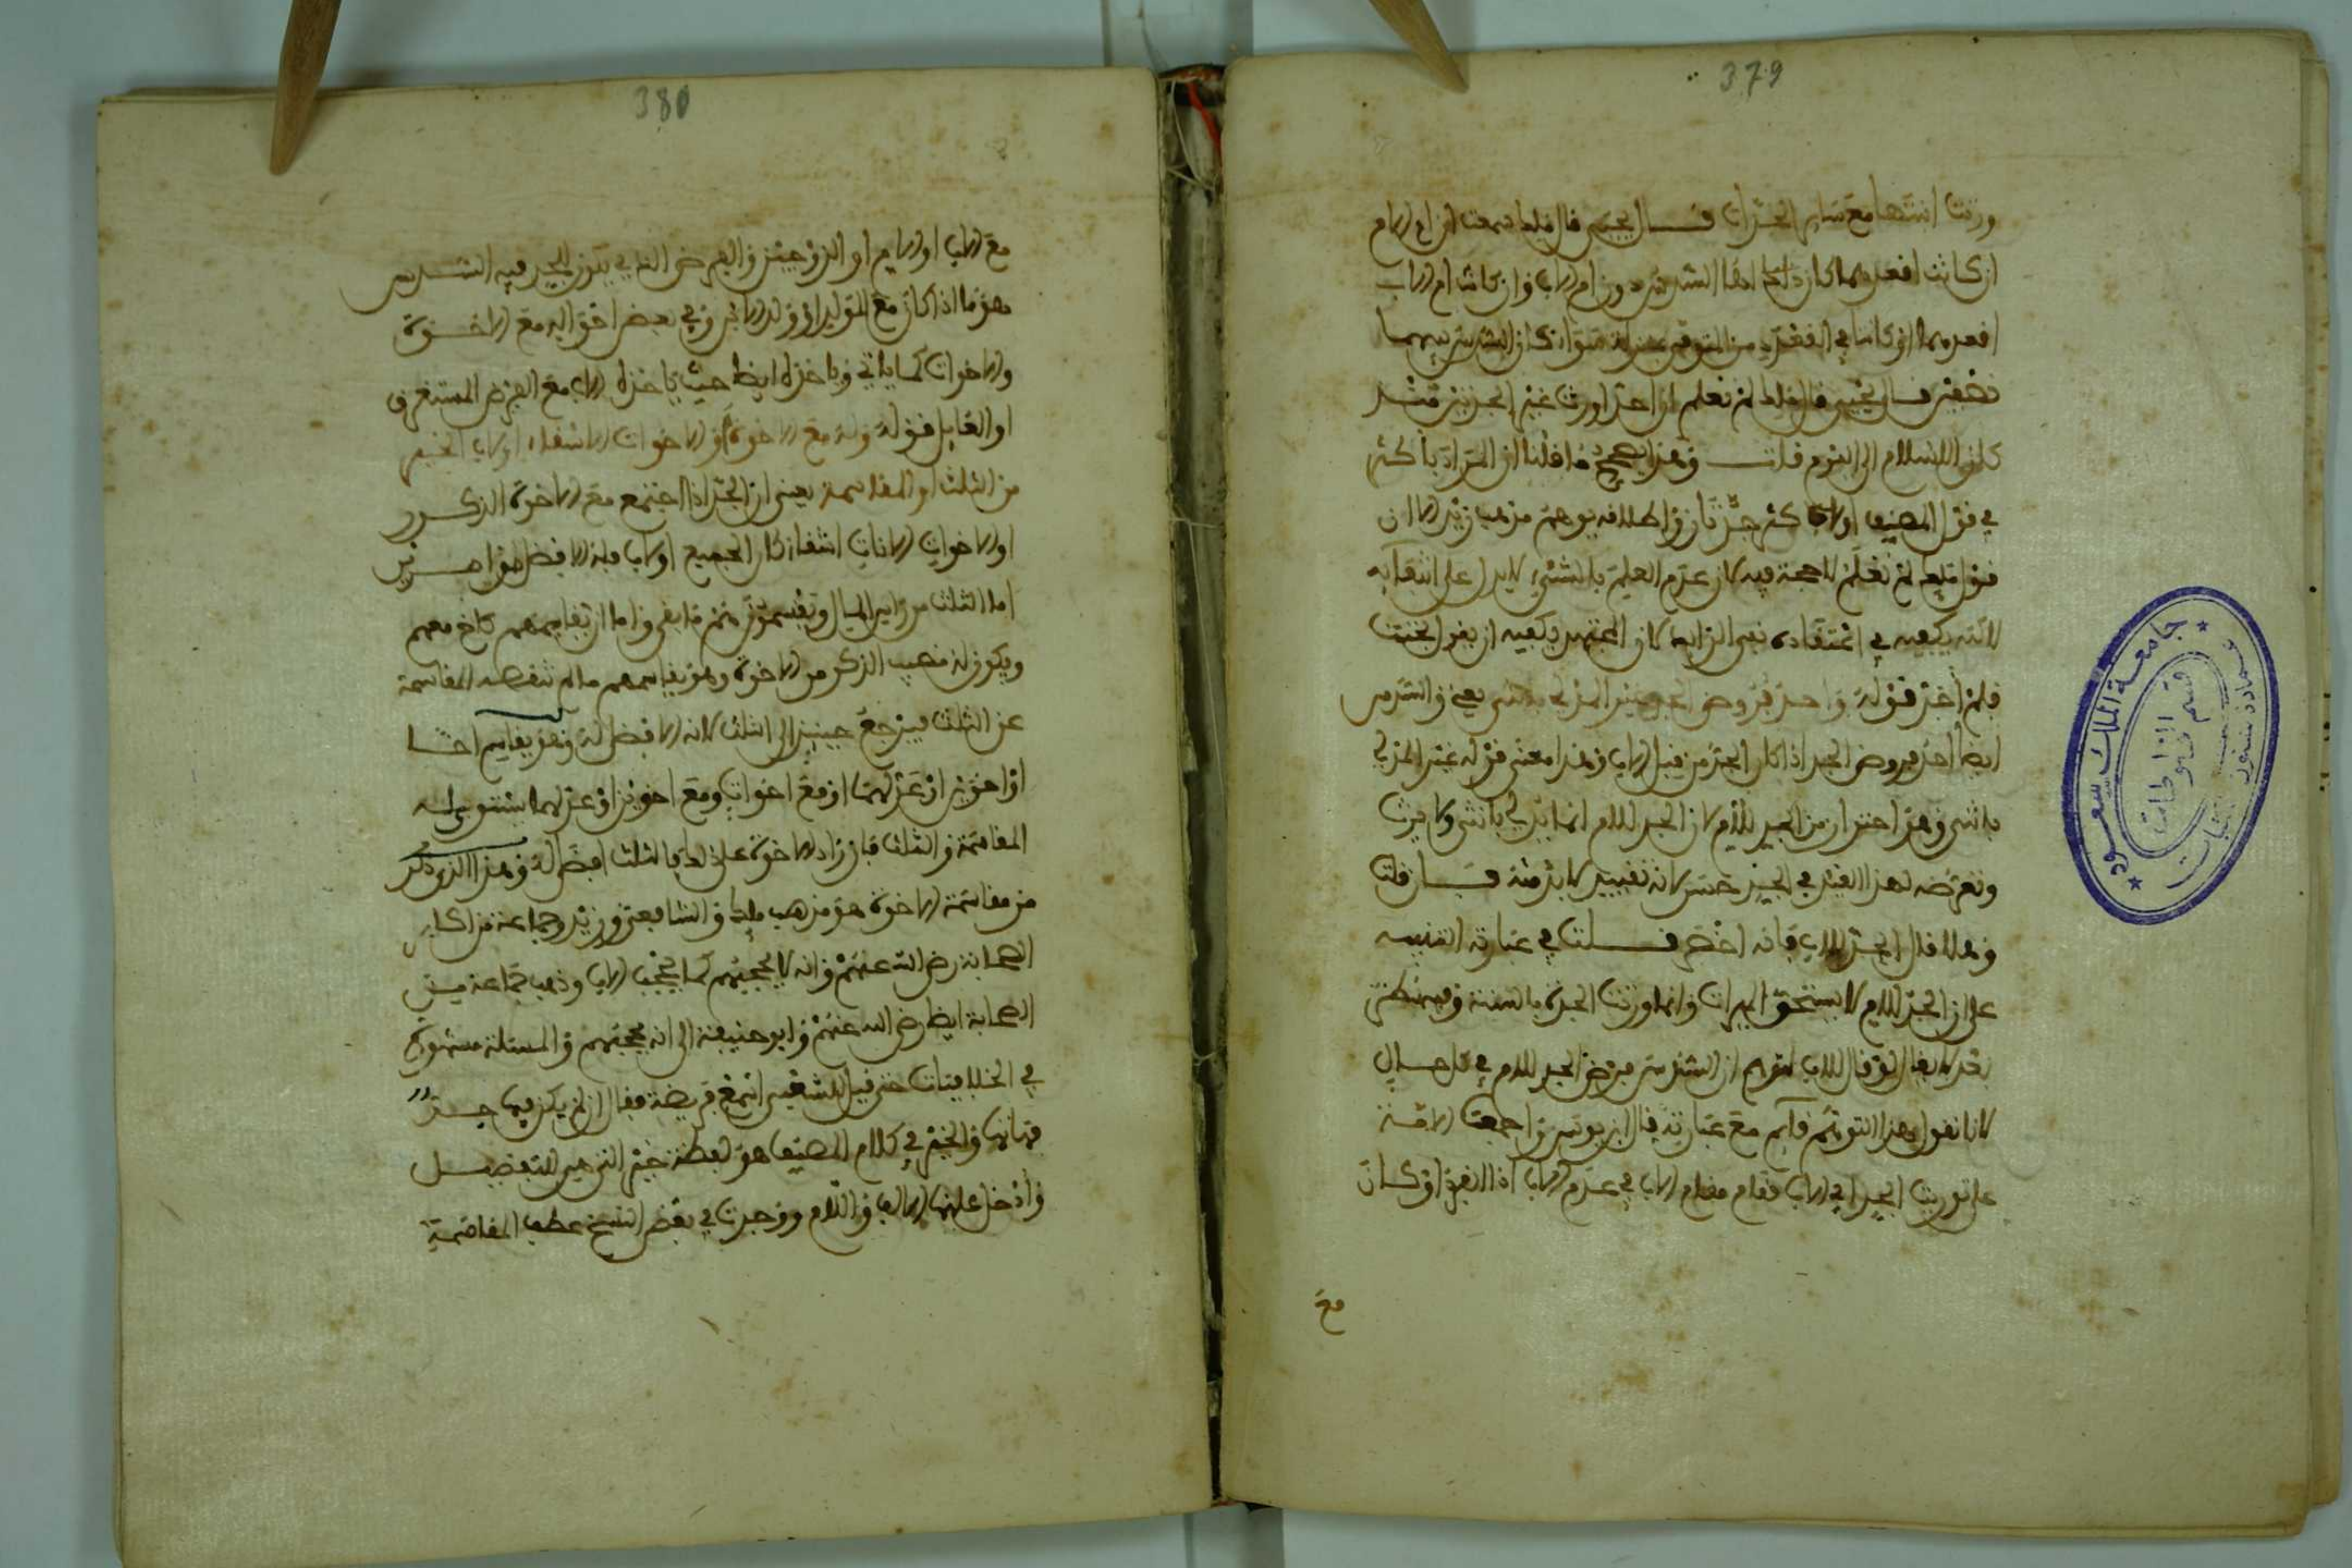 379
ورثت ابنتها مع سائر الجدات قال مالك سمعت ان ام الام
ان كانت اقعدهما كان لها السدس دون ام الاب وان كانت ام الاب
اقعدهما او كانتا في القعدد من المتوفى بمنزلة سواء كان السدس بينهما
نصفين قال مالك لم نعلم ان احدا ورث غير جدتين منذ
كان الاسلام الى اليوم قلت وهذا يصحح ما قلنا ان المراد باكثر
في قول المصنف اولاكثر جدتان واطلاقه يوهم مذهب زيد الا ان
قول مالك لم نعلم لا حجة فيه لان عدم العلم بالشيء لا يدل على انتفائه
لانه يكفيه في اعتقاده نفي الزايد لان المجتهد يكفيه ان يقول بحثت
فلم اجد قوله واحد فروض الجد غير المدلي بانثى يعني والسدس
ايضا احد فروض الجد اذا كان الجد من قبل الاب وهذا معنى قوله غير المدلي
بانثى وهو احتراز من الجد للام لان الجد للام انما يدلي بانثى ولا يرث
وتعرضه لهذا القيد في الجد حسن لانه تقييد لا بد منه فان قلت
وهلا قال الجد للاب فانه اخصر قلت في عبارته التنبيه
على ان الجد للام لا يستحق الميراث وانما ورثت الجدة بالسنة
بعد لا يقال لو قال للاب لتوهم ان السدس فرض الجد للام في كل حال
لانا نقول وهذا التوهم قائم مع عبارته قال ابن يونس واجمعت الامة
على توريث الجد ابي الاب فقام مقام الاب في عدم الاب اذا انفرد او كان
مع
جامعة الملك سعود
قسم المخطوطات
عمادة شئون المكتبات
380
مع الاب او الام او الزوجين والفرض الذي يكون للجد فيه السدس
هو ما اذا كان مع الولد او ولد الابن وفي بعض احواله مع الاخوة
والاخوات كما ياتي وياخذه ايضا حيث ياخذه الاب مع الفرض المستغرق
او العايل قوله وله مع الاخوة او الاخوات الاشقاء او لاب الخير
من الثلث او المقاسمة يعني ان الجد اذا اجتمع مع الاخوة الذكور
او الاخوات الاناث اشقاء كان الجميع او لاب فله الافضل من امرين
اما الثلث من راس المال ويقسمون هم ما بقي واما ان يقاسمهم كاخ معهم
ويكون له نصيب الذكر من الاخوة وهو يقاسمهم ما لم تنقصه المقاسمة
عن الثلث فيرجع حينئذ الى الثلث لانه الافضل له وهو يقاسم اخا
او اخوين او عدلهما او مع اخوات ومع اخوين او عدلهما يستوي له
المقاسمة والثلث فان زاد الاخوة على ذلك فالثلث افضل له وهذا الذي ذكر
من مقاسمة الاخوة هو مذهب مالك والشافعي وزيد وجماعة من اكابر
الصحابة رضي الله عنهم وانه لا يحجبهم كما يحجب الاب وذهب جماعة من
الصحابة ايضا رضي الله عنهم وابو حنيفة الى انه يحجبهم والمسئلة مشهورة
في الخلافيات حتى قيل للشعبي اسمع فريضة فقال ان لم يكن فيها جد
فهاتها والخير في كلام المصنف هو لفظة خير التي هي للتفضيل
وادخل عليها الالف واللام ووجدت في بعض النسخ عطف المقاسمة